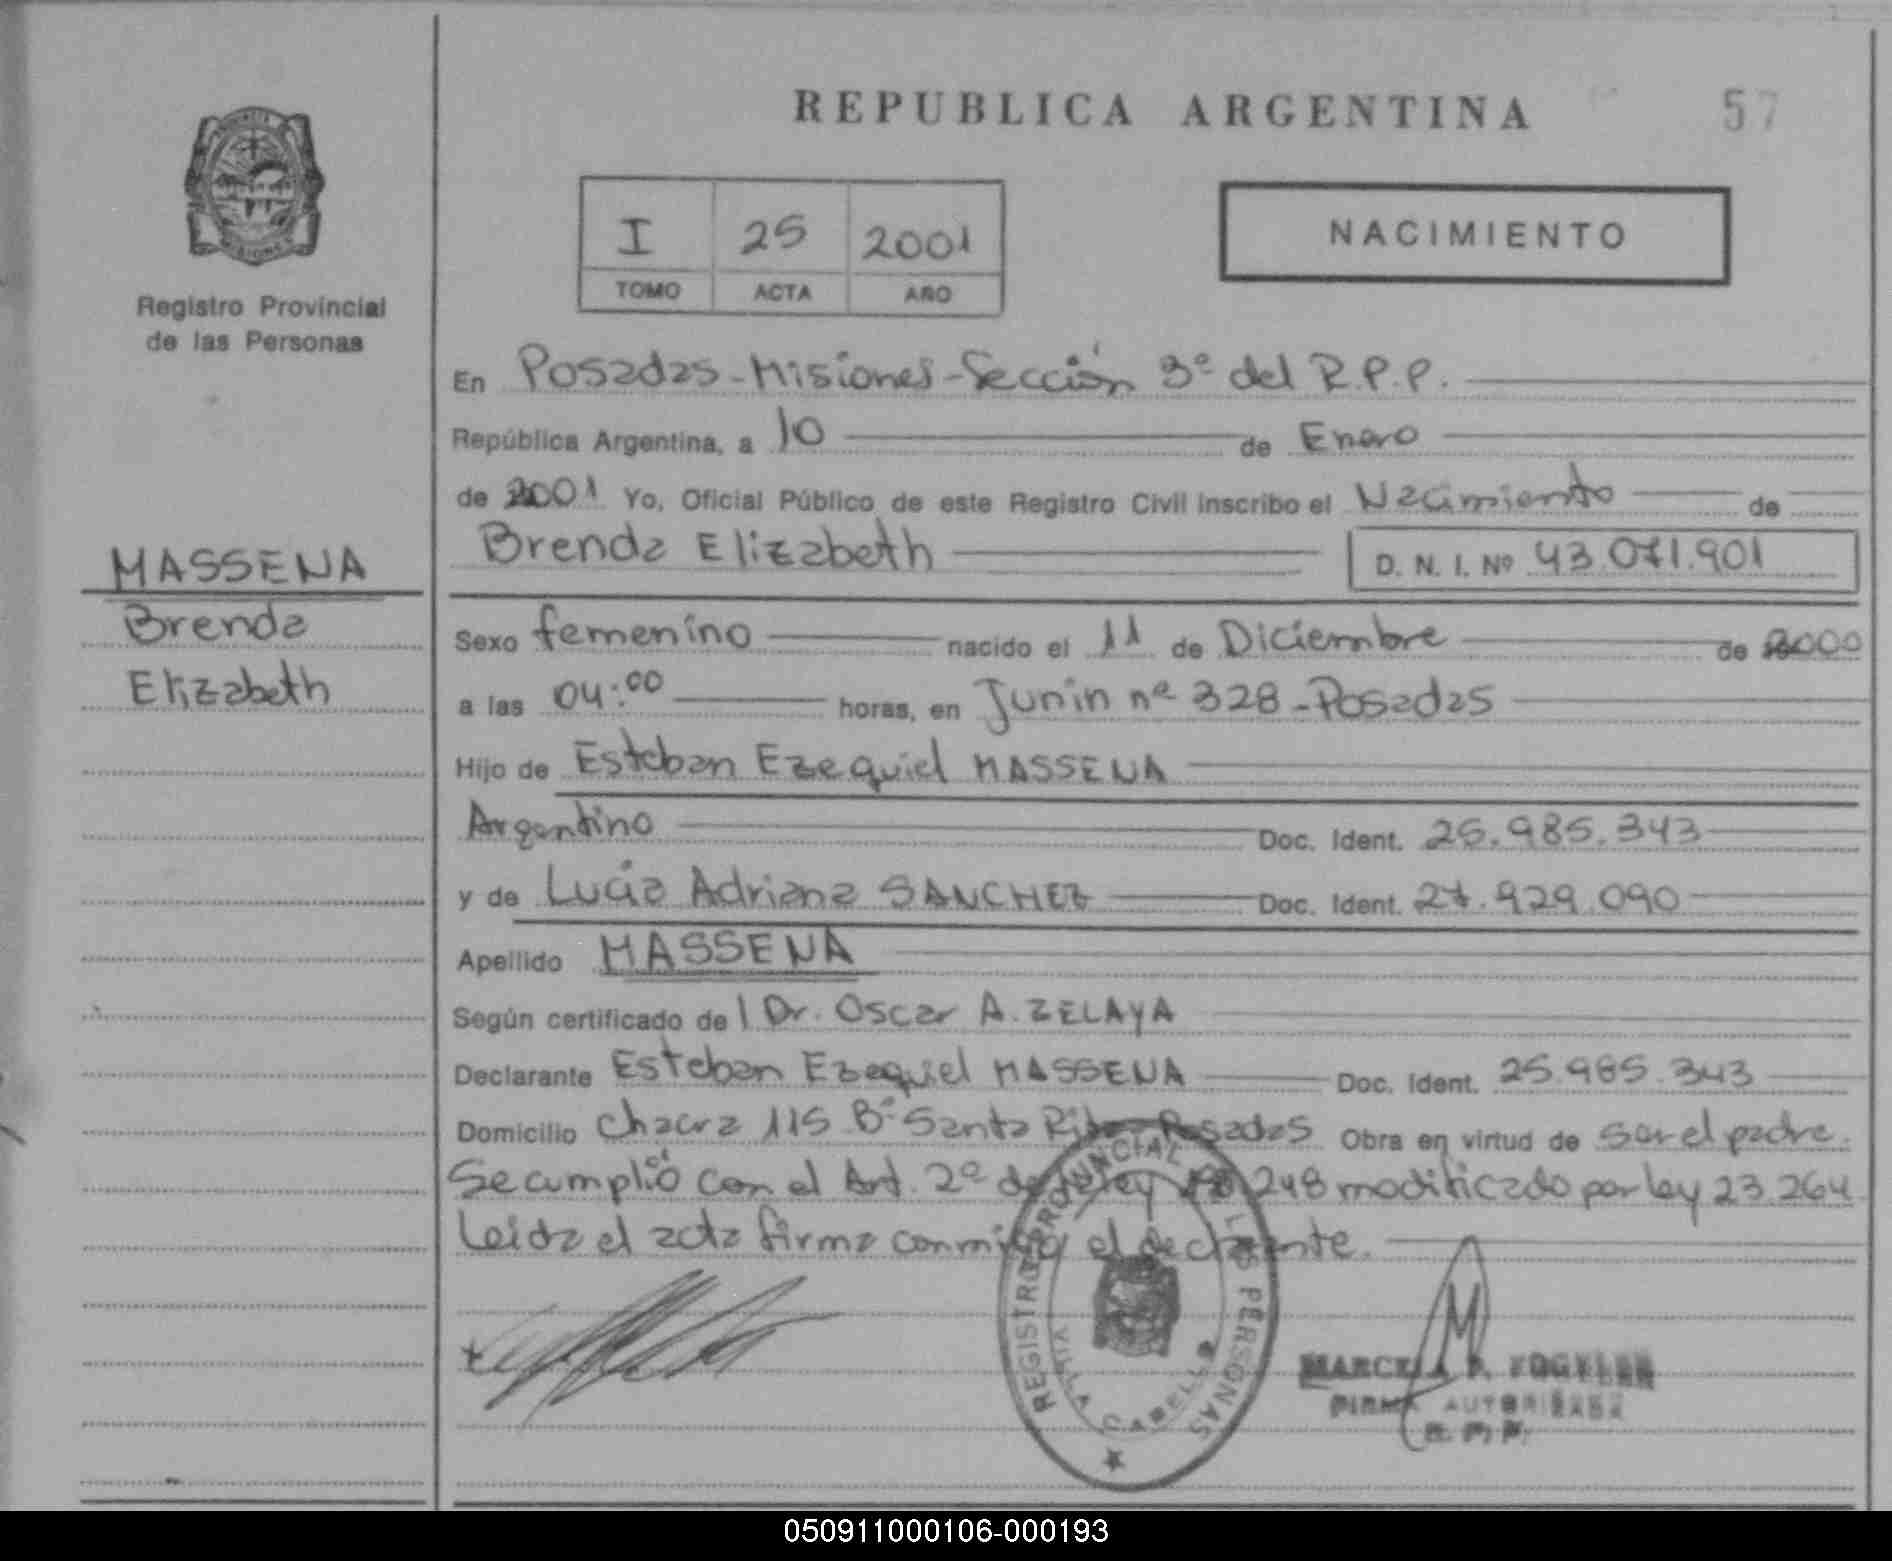 REPUBLICA ARGENTINA 57
I 25 2001
TOMO ACTA AÑO
NACIMIENTO
Registro Provincial
de las Personas
MASSENA
Brenda
Elizabeth
En Posadas-Misiones-Sección 3º del R.P.P.
República Argentina, a 10 de Enero
de 2001 Yo, Oficial Público de este Registro Civil inscribo el Nacimiento de
Brenda Elizabeth D. N. I. Nº 43.071.901
Sexo femenino nacido el 11 de Diciembre de 2000
a las 04:00 horas, en Junín nº 328-Posadas
Hijo de Esteban Ezequiel MASSENA
Argentino Doc. Ident. 25.985.343
y de Lucía Adriana SANCHEZ Doc. Ident. 27.929.090
Apellido MASSENA
Según certificado de l Dr. Oscar A. ZELAYA
Declarante Esteban Ezequiel MASSENA Doc. Ident. 25.985.343
Domicilio Chacra 115 Bº Santa Rita-Posadas Obra en virtud de ser el padre.
Se cumplió con el Art. 2º de la ley 18.248 modificado por ley 23.264
Leída el acta firma conmigo el declarante.
REGISTRO PROVINCIAL LAS PERSONAS
VILLA CABELLO
MARCELA
FIRMA AUTORIZADA
R. P. P.
050911000106-000193